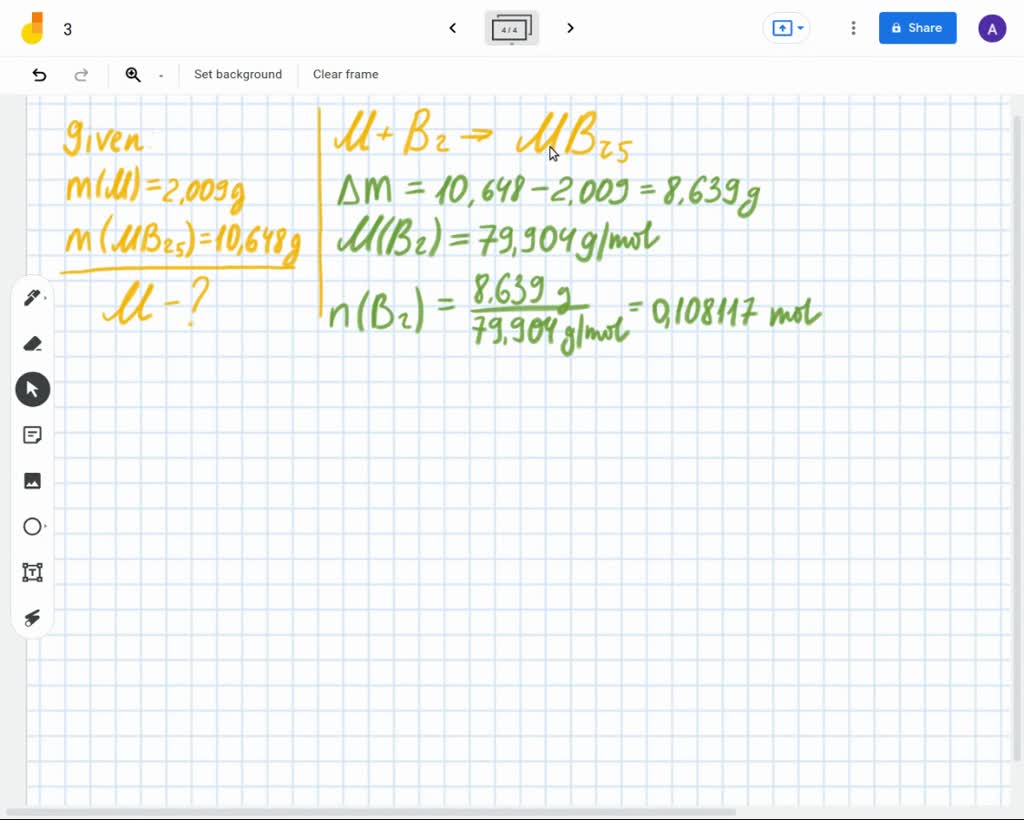 3
4 / 4
Share
A
Set background
Clear frame
given
m(M)=2,009g
m(MB₂₅)=10,648g
M-?
M+B₂⇒ MB₂₅
Δm = 10,648-2,009=8,639g
M(B₂)=79,904g/mol
n(B₂) = 8,639 g / 79,904 g/mol = 0,108117 mol